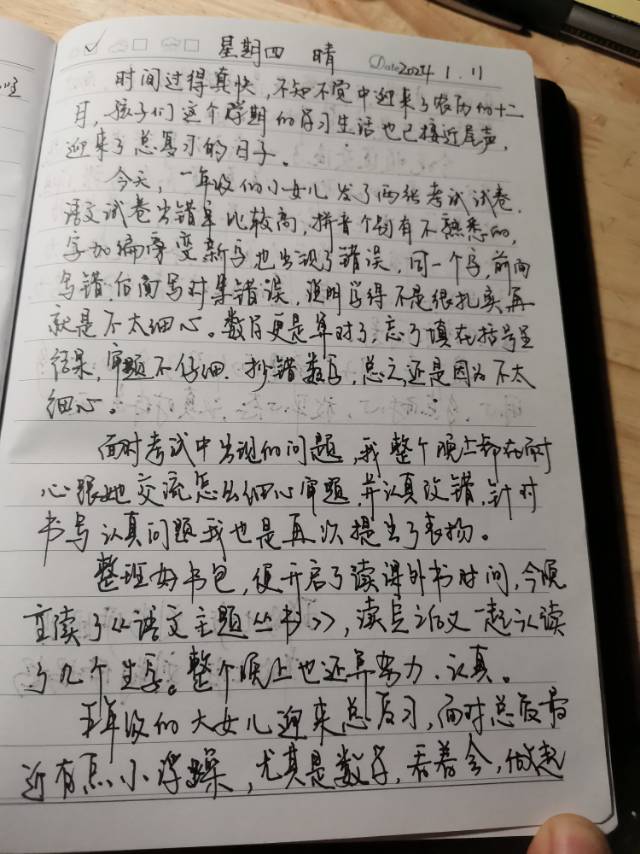 星期四 晴 Date 2024.1.11
时间过得真快，不知不觉中迎来了农历的十二
月，孩子们这个学期的学习生活也已接近尾声，
迎来了总复习的日子。
今天，一年级的小女儿发了两张考试试卷，
语文试卷出错率比较高，拼音个别有不熟悉的，
字加偏旁变新字也出现了错误，同一个字，前面
写错，后面写对等错误，说明学得不是很扎实再
就是不太细心。数学更是算对了，忘了填在括号里
结果，审题不仔细，抄错数字，总之还是因为不太
细心。
面对考试中出现的问题，我整个晚上都在耐
心跟她交流怎么细心审题，并认真改错，针对
书写认真问题我也是再次提出了表扬。
整理好书包，便开启了读课外书时间，今晚
读了《语文主题丛书》，读完之后又一起认读
了几个生字。整个晚上也还算努力、认真。
五年级的大女儿迎来总复习，面对总复习最
近有点小浮躁，尤其是数学，看着会，做起